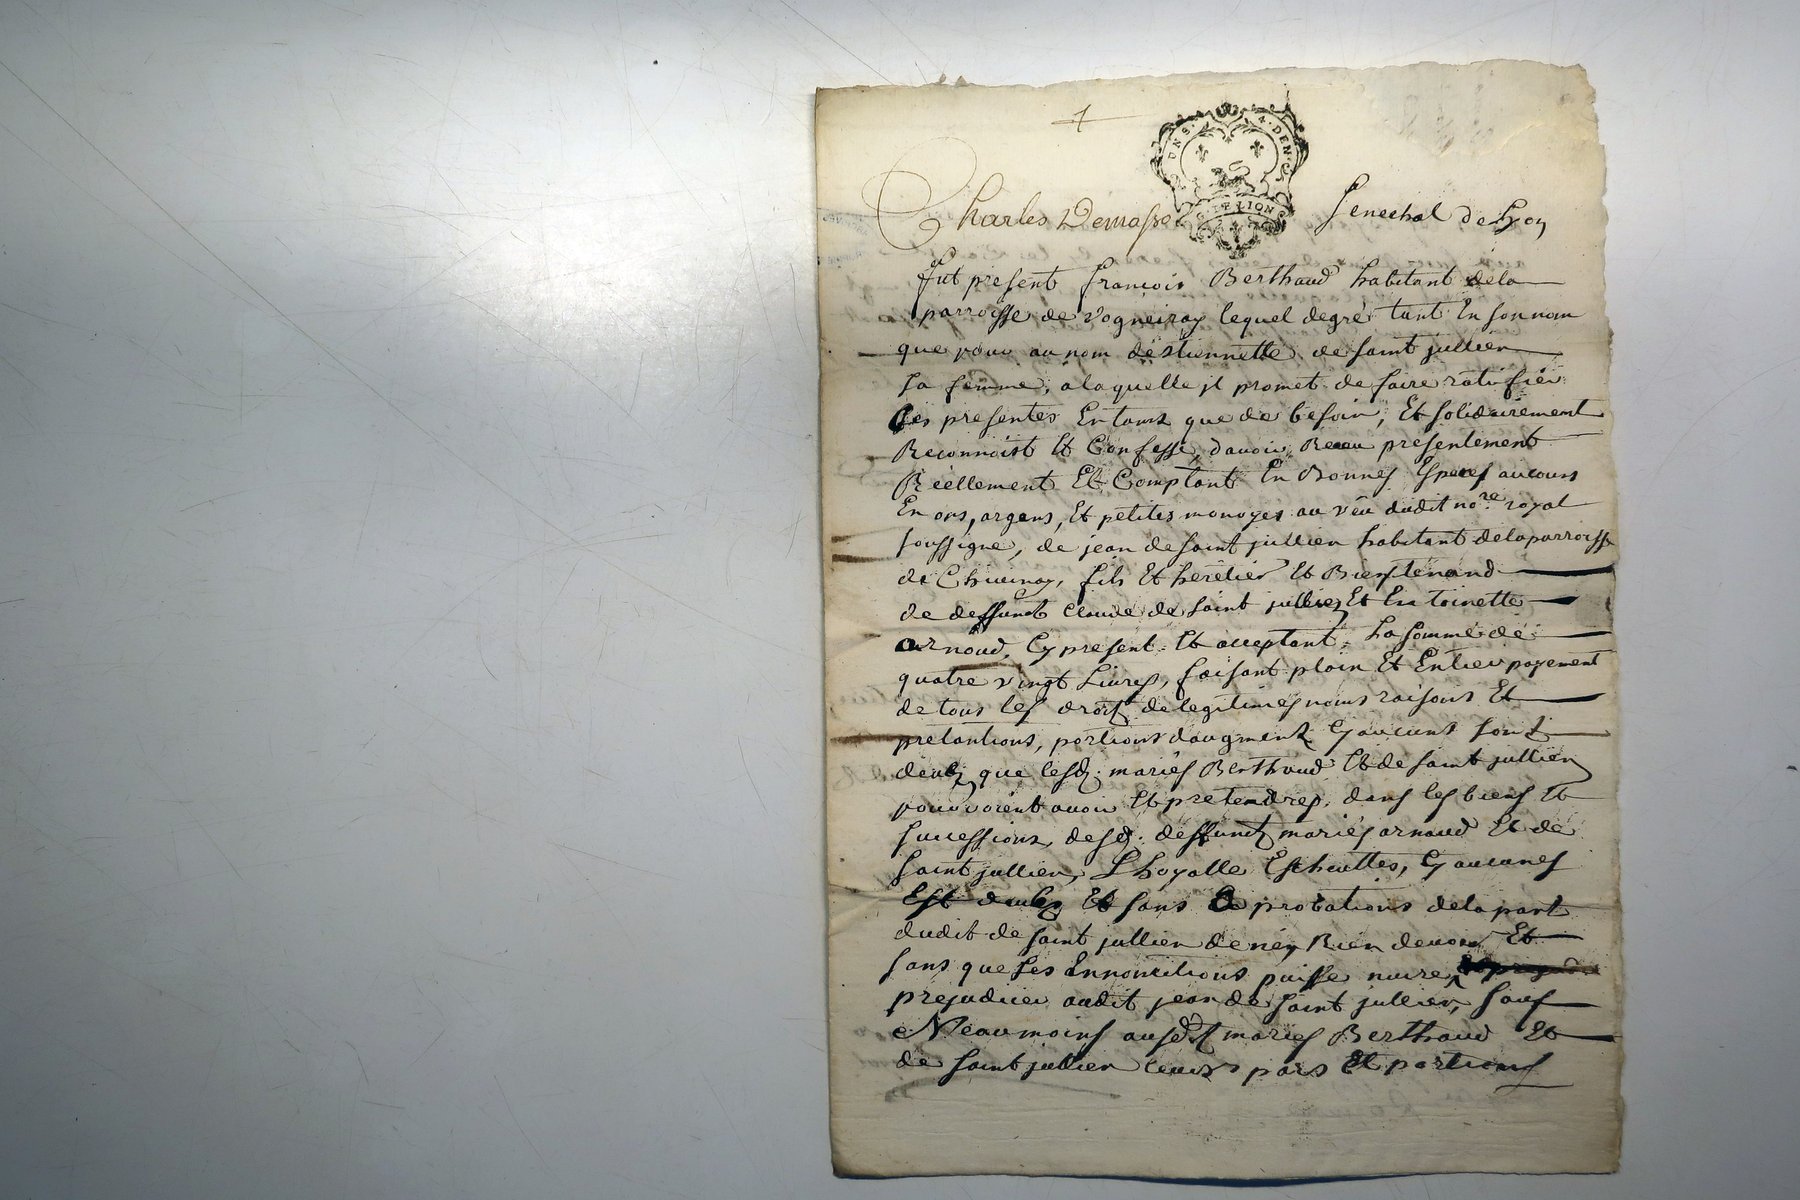 1
UN.S. 4.DEN.
G. DE LION
Charles Demasso Senechal de Lyon
fut present françois Berthaud habitant dela
parroisse de vogneiray lequel degré tant En son nom
que pour au nom d'Estiennette de saint jullien
sa femme, a laquelle jl promet de faire ratifier
Ces presentes En tant que de besoin, Et solidairement
Reconnoist Et Confesse, davoir Receu presentement
Réellement Et Comptant En Bonnes Especes aucours
En ors, argens, Et petites monoyes au véu dudit no.re royal
soussigne, de jean de saint jullien habitant delaparroisse
de Chivinay, fils Et heretier Et Bientenand
de deffunct Claude de saint jullien Et Entoinette
arnoud, Cy present Et acceptant, La somme de
quatre vingt Livres, faisant plain Et Entier payement
de tous les droits de legitimes noms raisons Et
pretantions, portions daugment Cy aucuns sont
deubz que lesd. mariés Berthaud Et de saint jullien
pourroient avoir Et pretendres, dans les biens Et
successions, desd. deffunctz mariés arnaud Et de
saint jullien, Lhoyalle Escheuttes, Cy aucunes
Est deubz Et sans aprobations dela part
dudit de saint jullien de néy Rien devoir Et
sans que Les Ennontiations puisse nuire,
prejudicier audit jean de saint jullien, sauf
Neaumoins ausd. mariés Berthaud Et
de saint jullien leurs pars Et portions